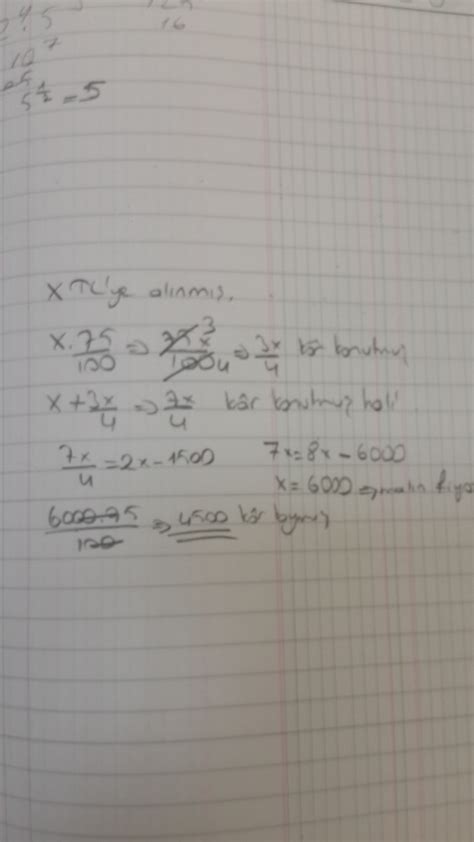 5
16
10⁷
5^½ = 5
x TL'ye alınmış.
x.75/100 => 75x/100 3 4 => 3x/4 kâr konulmuş
x + 3x/4 => 7x/4 kâr konulmuş hali
7x/4 = 2x - 1500 7x = 8x - 6000
x = 6000 => malın fiya
6000.75/100 => 4500 kâr